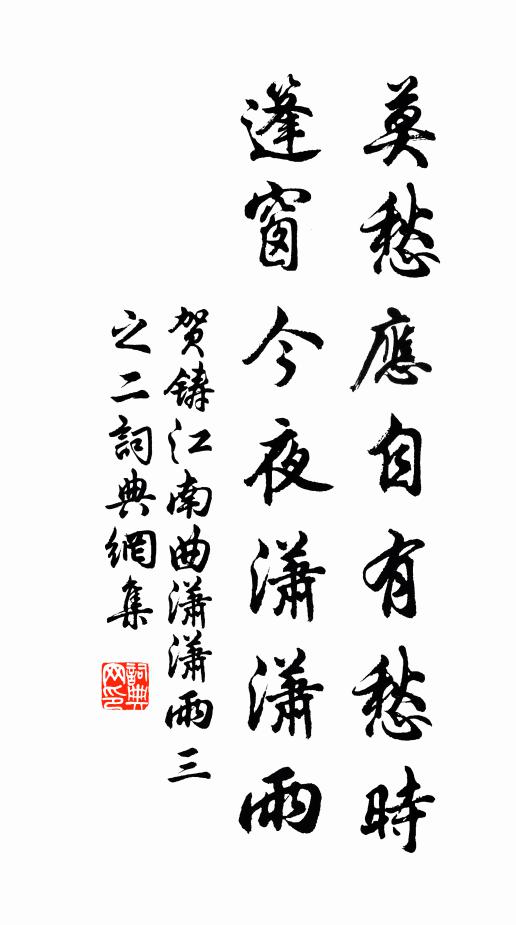 莫愁應自有愁時
篷窗今夜瀟瀟雨
贺鑄江南曲瀟瀟雨三
之二詞典網集
詞典
网印